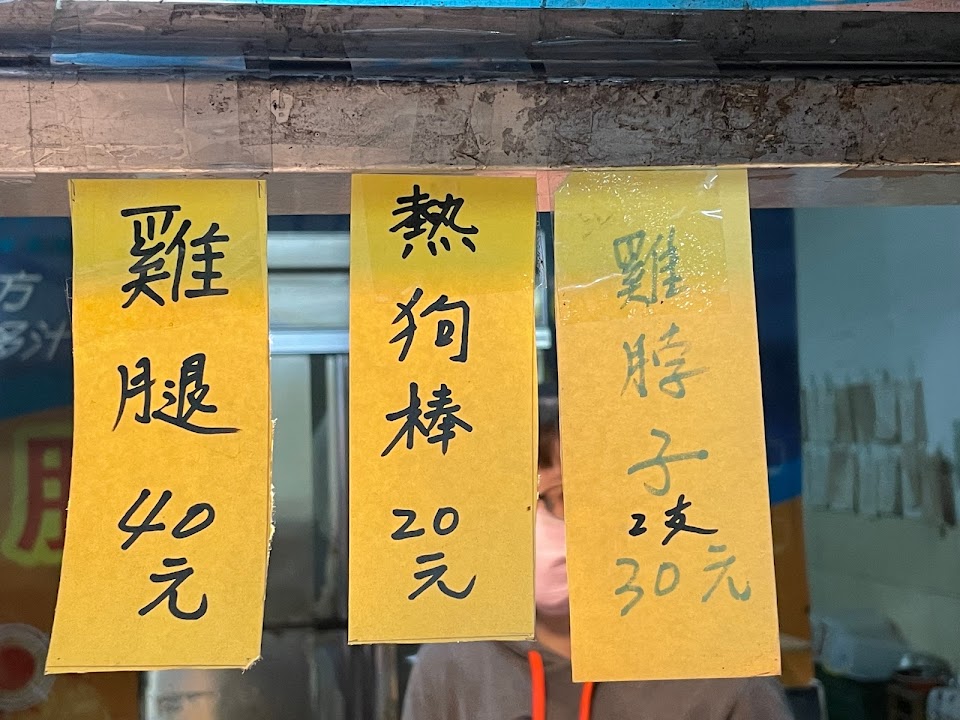 雞腿
40
元
熱狗棒
20
元
雞脖子
2支
30元
方
多汁